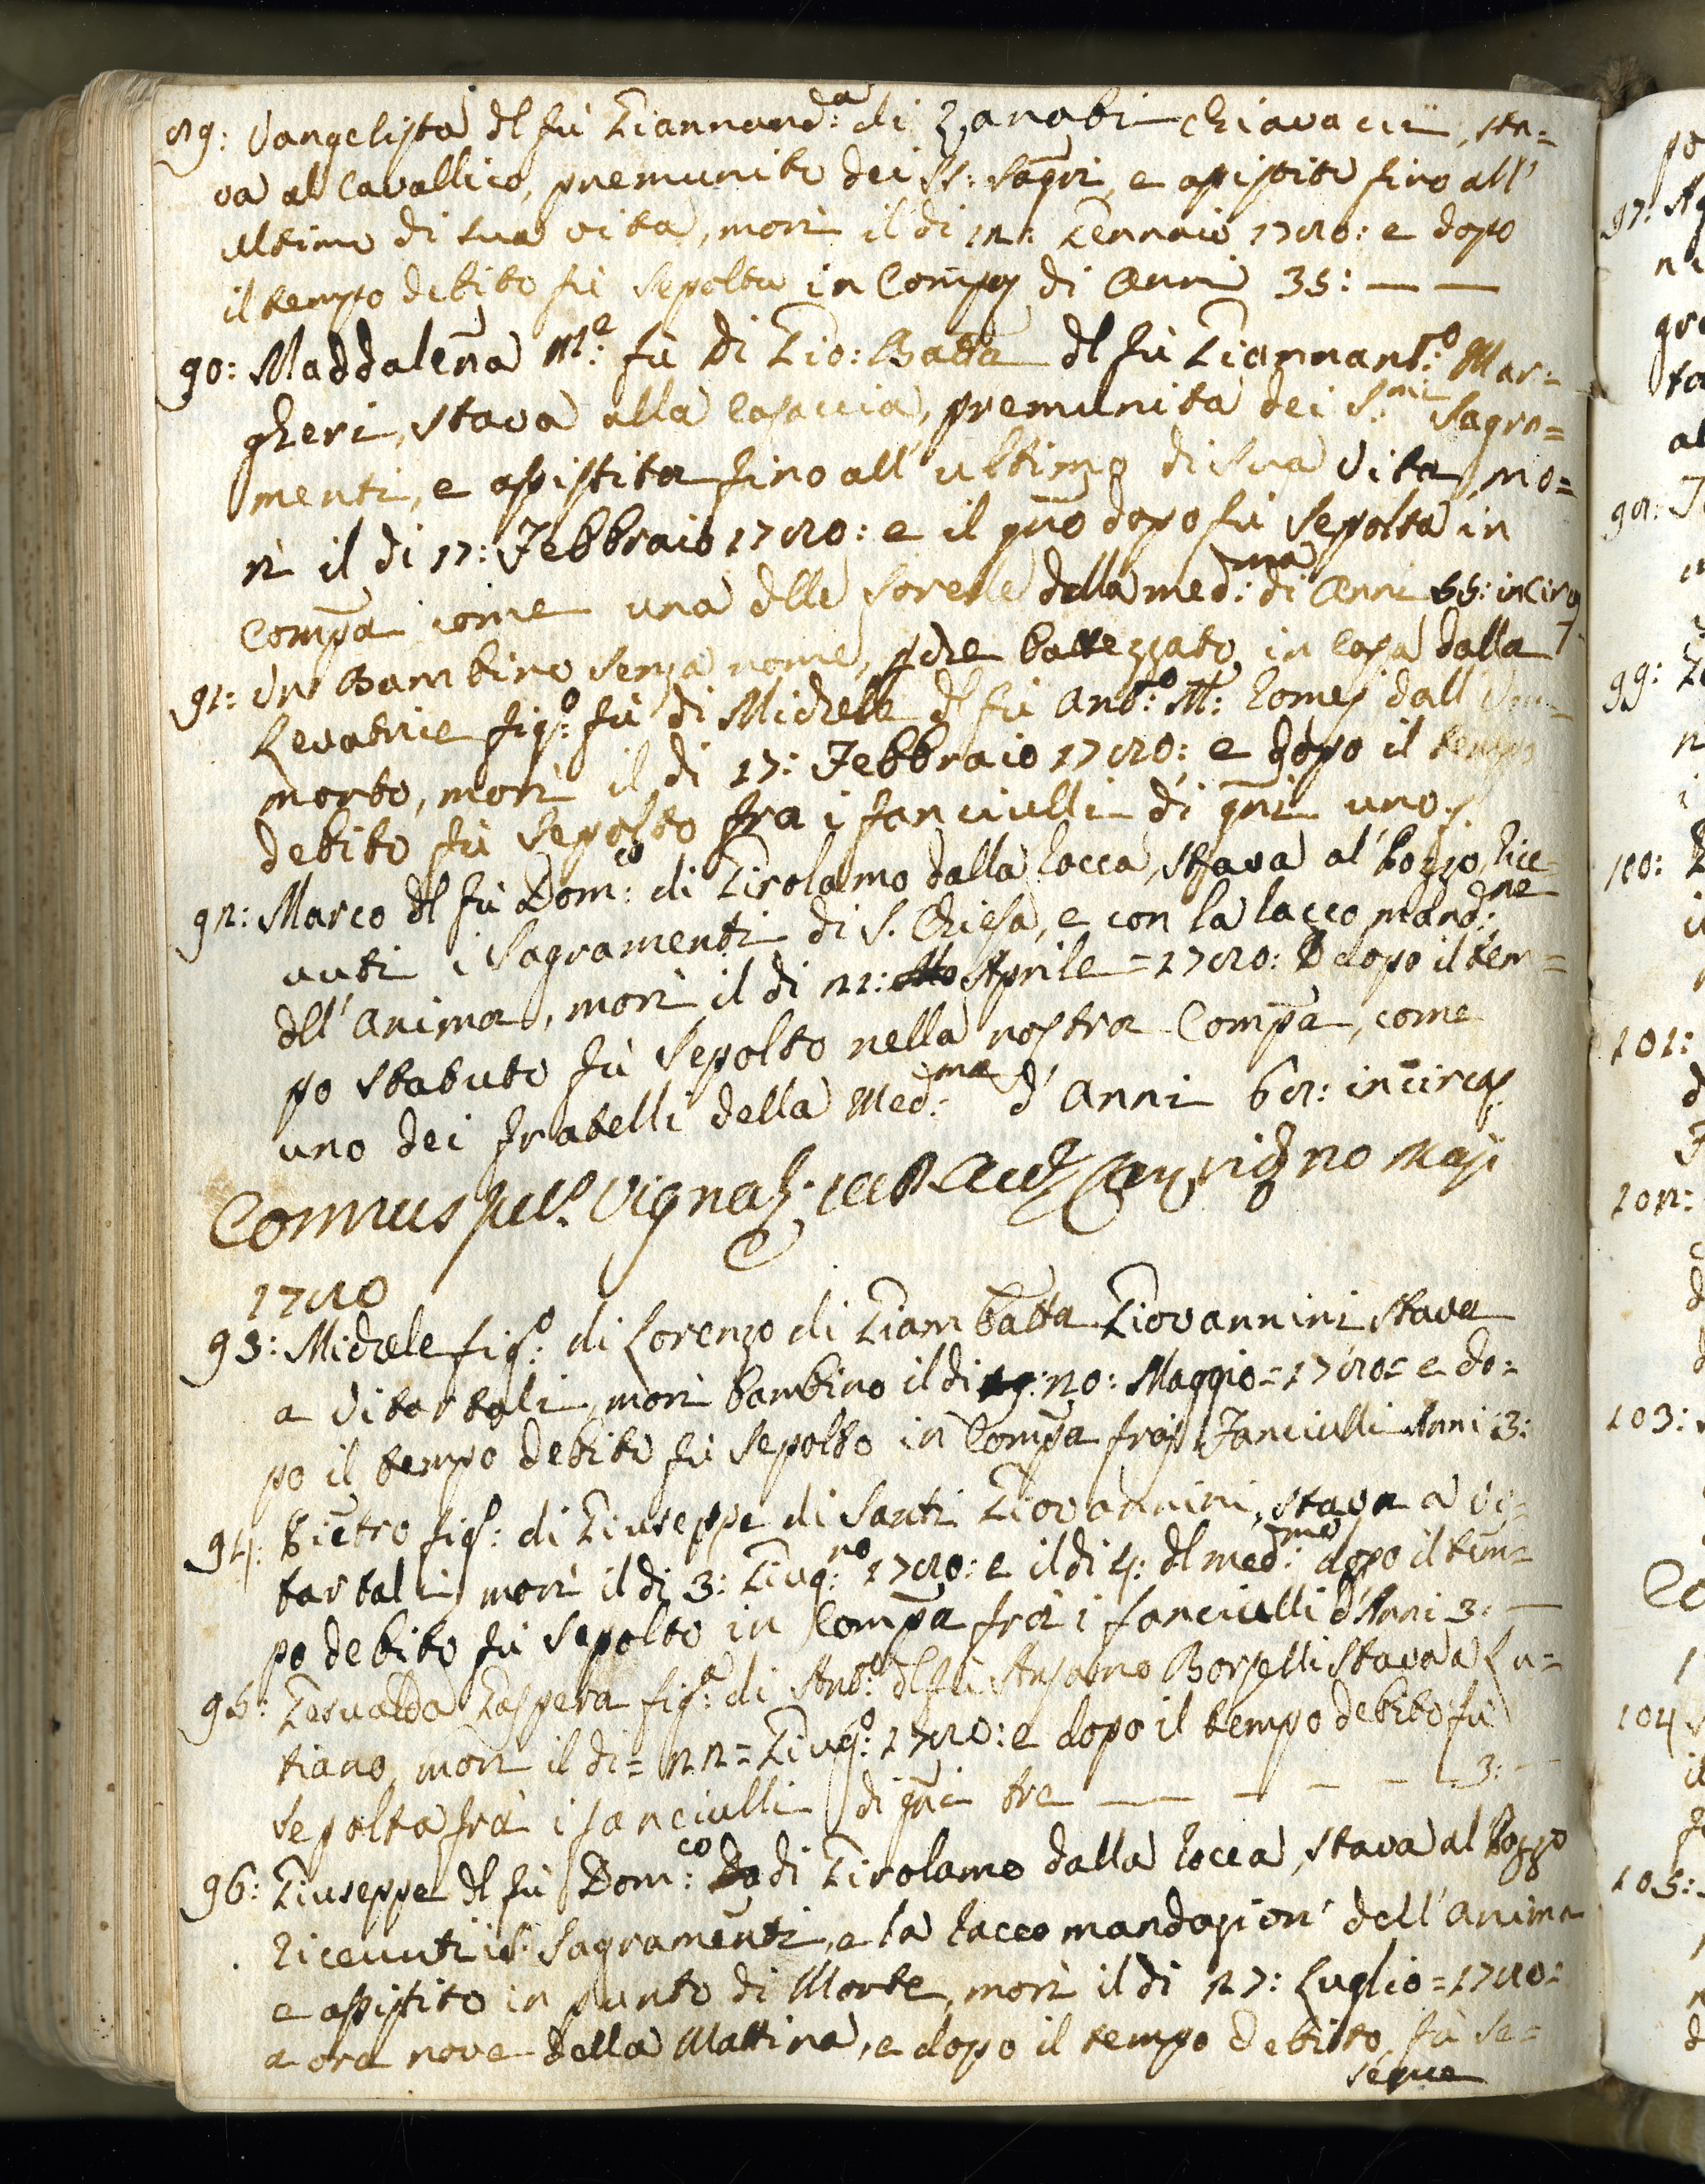 89: Vangelista dl fù Giannand:ª di Zanobi chiavacii, sta=
va al Cavallico, premunito dei SS: Sagri, e assistito fino all'
ultimo di sua vita, morì il di 12: Gennaio 1780: e dopo
il tempo debito fù Sepolto in Compª di Anni 35: — —
90: Maddalena M:e fù di Gio: Batta dl fù Giannant:o Mar=
gheri, stava alla Casaccia, premunita dei S:mi Sagra=
menti, e assistita fino all' ultimo di sua Vita, mo=
rì il di 17: Febbraio 1780: e il gno dopo fù Sepolta in
Compa come una dlle Sorelle della med:ma di Anni 55: in Circa
91: Un Bambino senza nome, pche battezzato in Casa dalla
Levatrice fig:o fù di Michele dl fù Ant:o M:
morto, morì il di 17: Febbraio 1780: e dopo il tempo
debito fù Sepolto fra i fanciulli di gni uno
92: Marco dl fù Dom:co di Girolamo dalla Rocca, stava al Pozzo, Rice=
vuti i Sagramenti di S. Chiesa, e con la raccomand:ne
dll' Anima, morì il di 21: Aprile = 1780: E dopo il tem=
po statuto fù Sepolto nella nostra Compa, come
uno dei fratelli della Med:ma d' Anni 68: in circa
1780
93: Michele fig:o di Lorenzo di Giam batta Giovannini stava
a Vitartali, morì bambino il di 20: Maggio = 1780 = e do=
po il tempo debito fù Sepolto in Compa fra i Fanciulli Anni 3:
94: Pietro fig: di Giuseppe di Santi Giovannini, stava a Vi=
tartali, morì il di 3: Giug:no 1780: e il di 4: dl med:mo dopo il tem=
po debito fù sepolto in Compa frà i fanciulli d'Anni 3: —
95: Gesualda Gaspera fig:a di Ant:o dl fù Ansamo Borselli stava a Lu=
tiano, morì il di = 22 = Giug:o 1780: e dopo il tempo debito fù
Sepolta frà i fanciulli di gni tre — — — — 3: —
96: Giuseppe dl fù Dom:co di Girolamo dalla Rocca, stava al Pozzo
Ricevuti i S. Sagramenti, e la Raccomandazion' dell' Anima
e assistito in punto di Morte, morì il di 27: Luglio = 1780=
a ora nove della Mattina, e dopo il tempo debito, fù Se=
segue